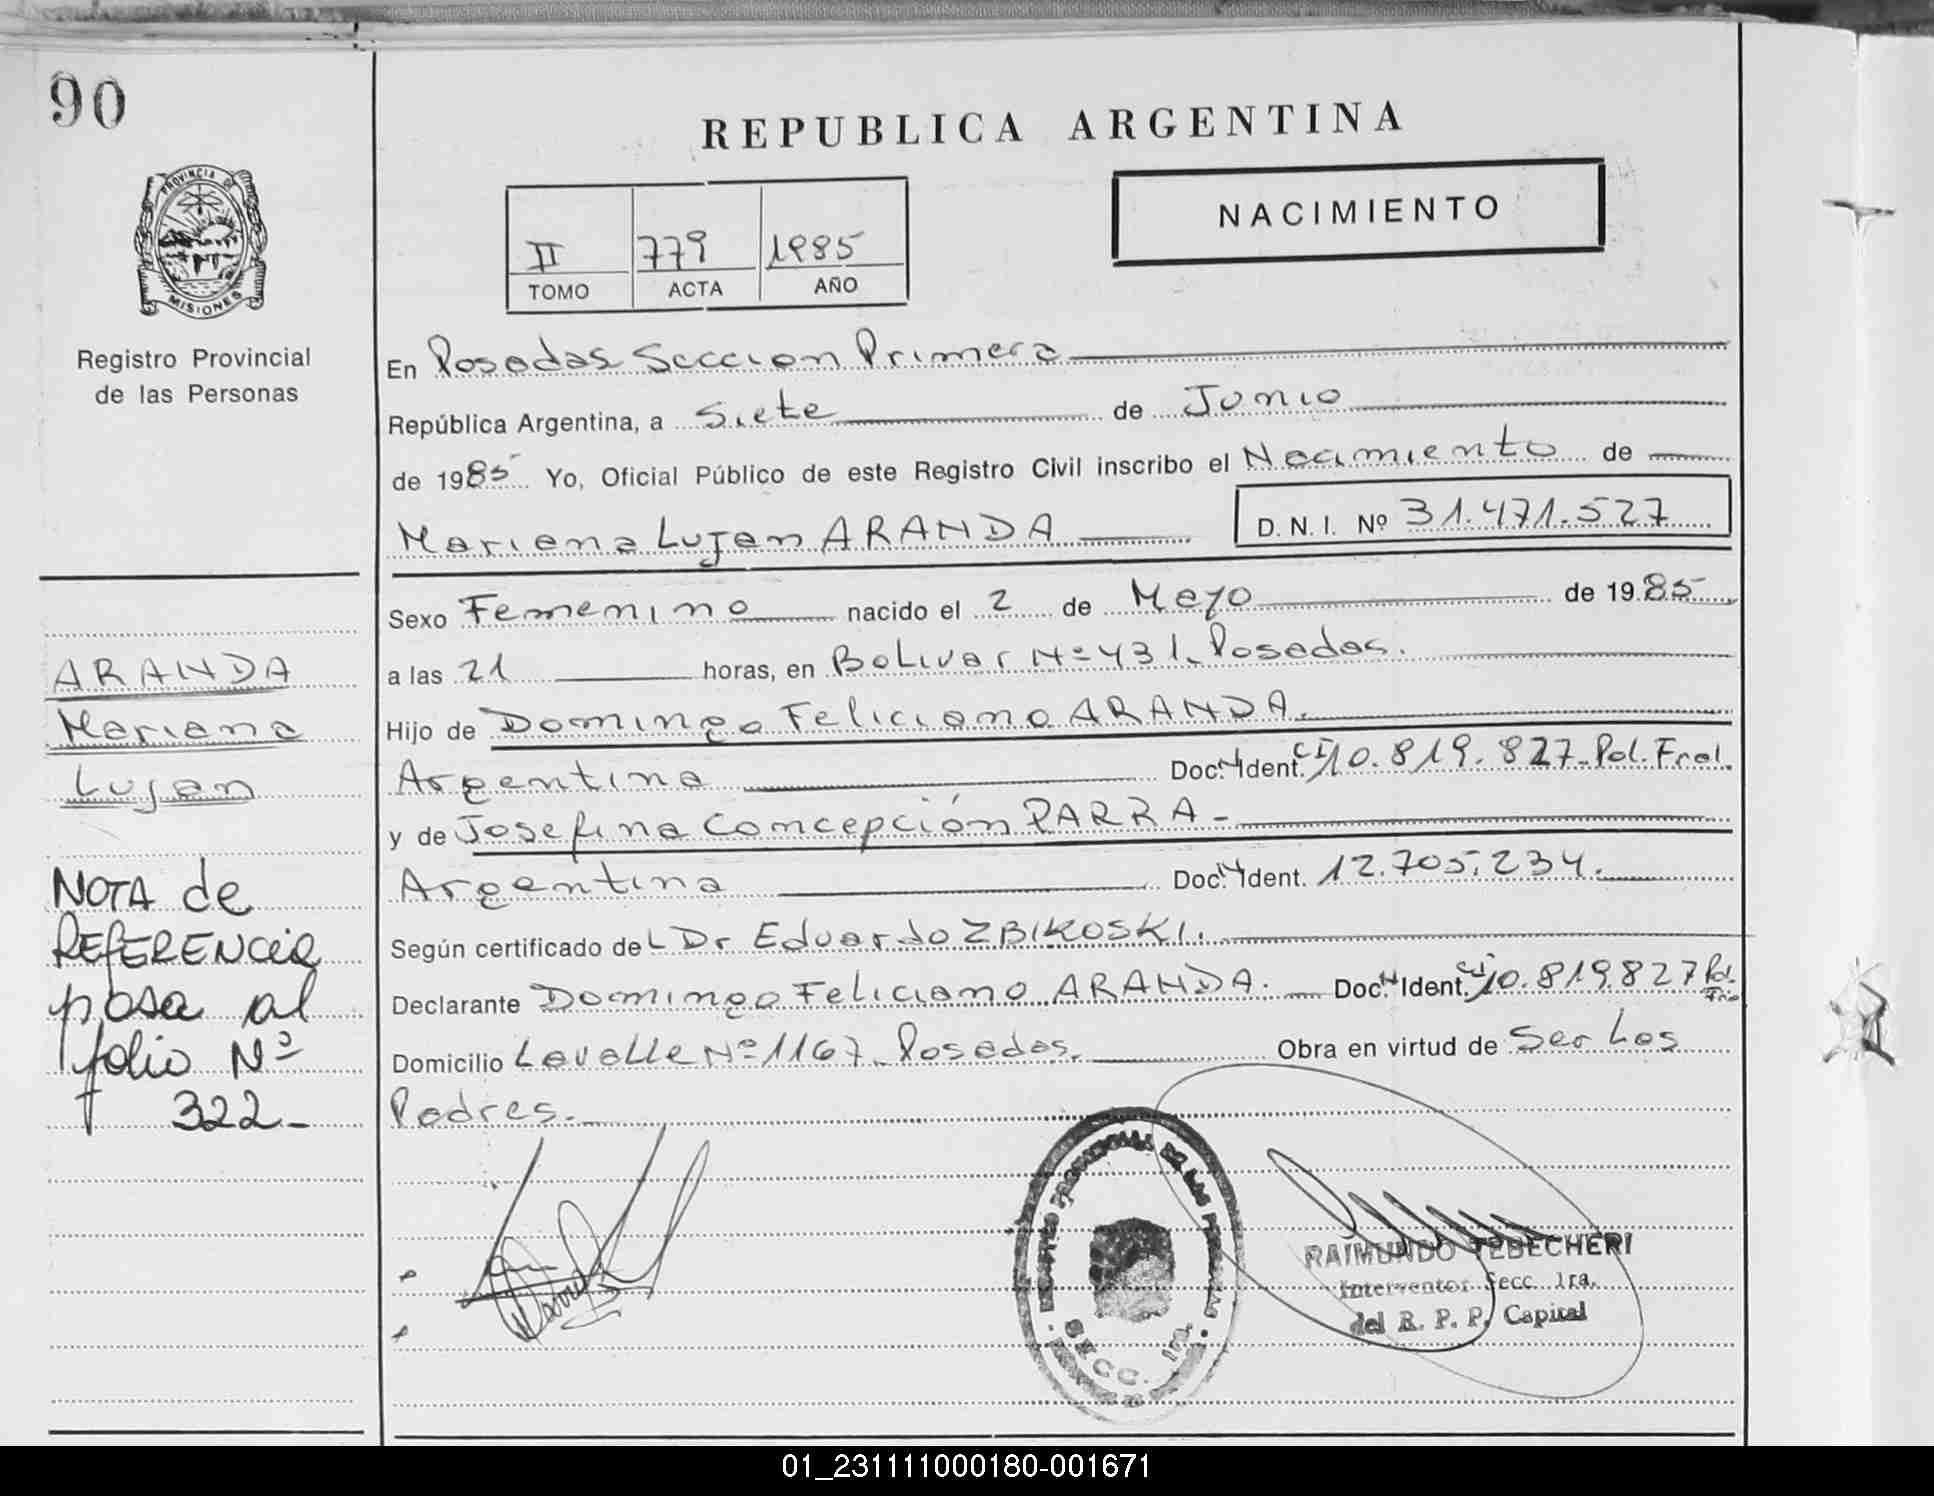 90
REPUBLICA ARGENTINA
PROVINCIA DE
MISIONES
Registro Provincial
de las Personas
II 779 1985
TOMO ACTA AÑO
NACIMIENTO
En Posadas Seccion Primera
República Argentina, a Siete de Junio
de 1985 Yo, Oficial Público de este Registro Civil inscribo el Nacimiento de
Mariana Lujan ARANDA D. N. I. Nº 31.471.527
Sexo Femenino nacido el 2 de Mayo de 1985
a las 21 horas, en Bolivar Nº 431. Posadas.
Hijo de Domingo Feliciano ARANDA.
Argentina Doc. Ident. CI 10.819.827 - Pol. Fral.
y de Josefina Concepción PARRA -
Argentina Doc. Ident. 12.705.234.
Según certificado del Dr Eduardo ZBIKOSKI.
Declarante Domingo Feliciano ARANDA. Doc. Ident. CI 10.819827 Pol.
Domicilio Lavalle Nº 1167 - Posadas. Obra en virtud de Ser Los
Padres.
ARANDA
Mariana
Lujan
NOTA de
REFERENCIA
pasa al
folio Nº
322-
REGISTRO PROVINCIAL DE LAS PERSONAS
SECC. 1ra.
RAIMUNDO TEBECHERI
Interventor Secc. 1ra.
del R. P. P. Capital
01_231111000180-001671